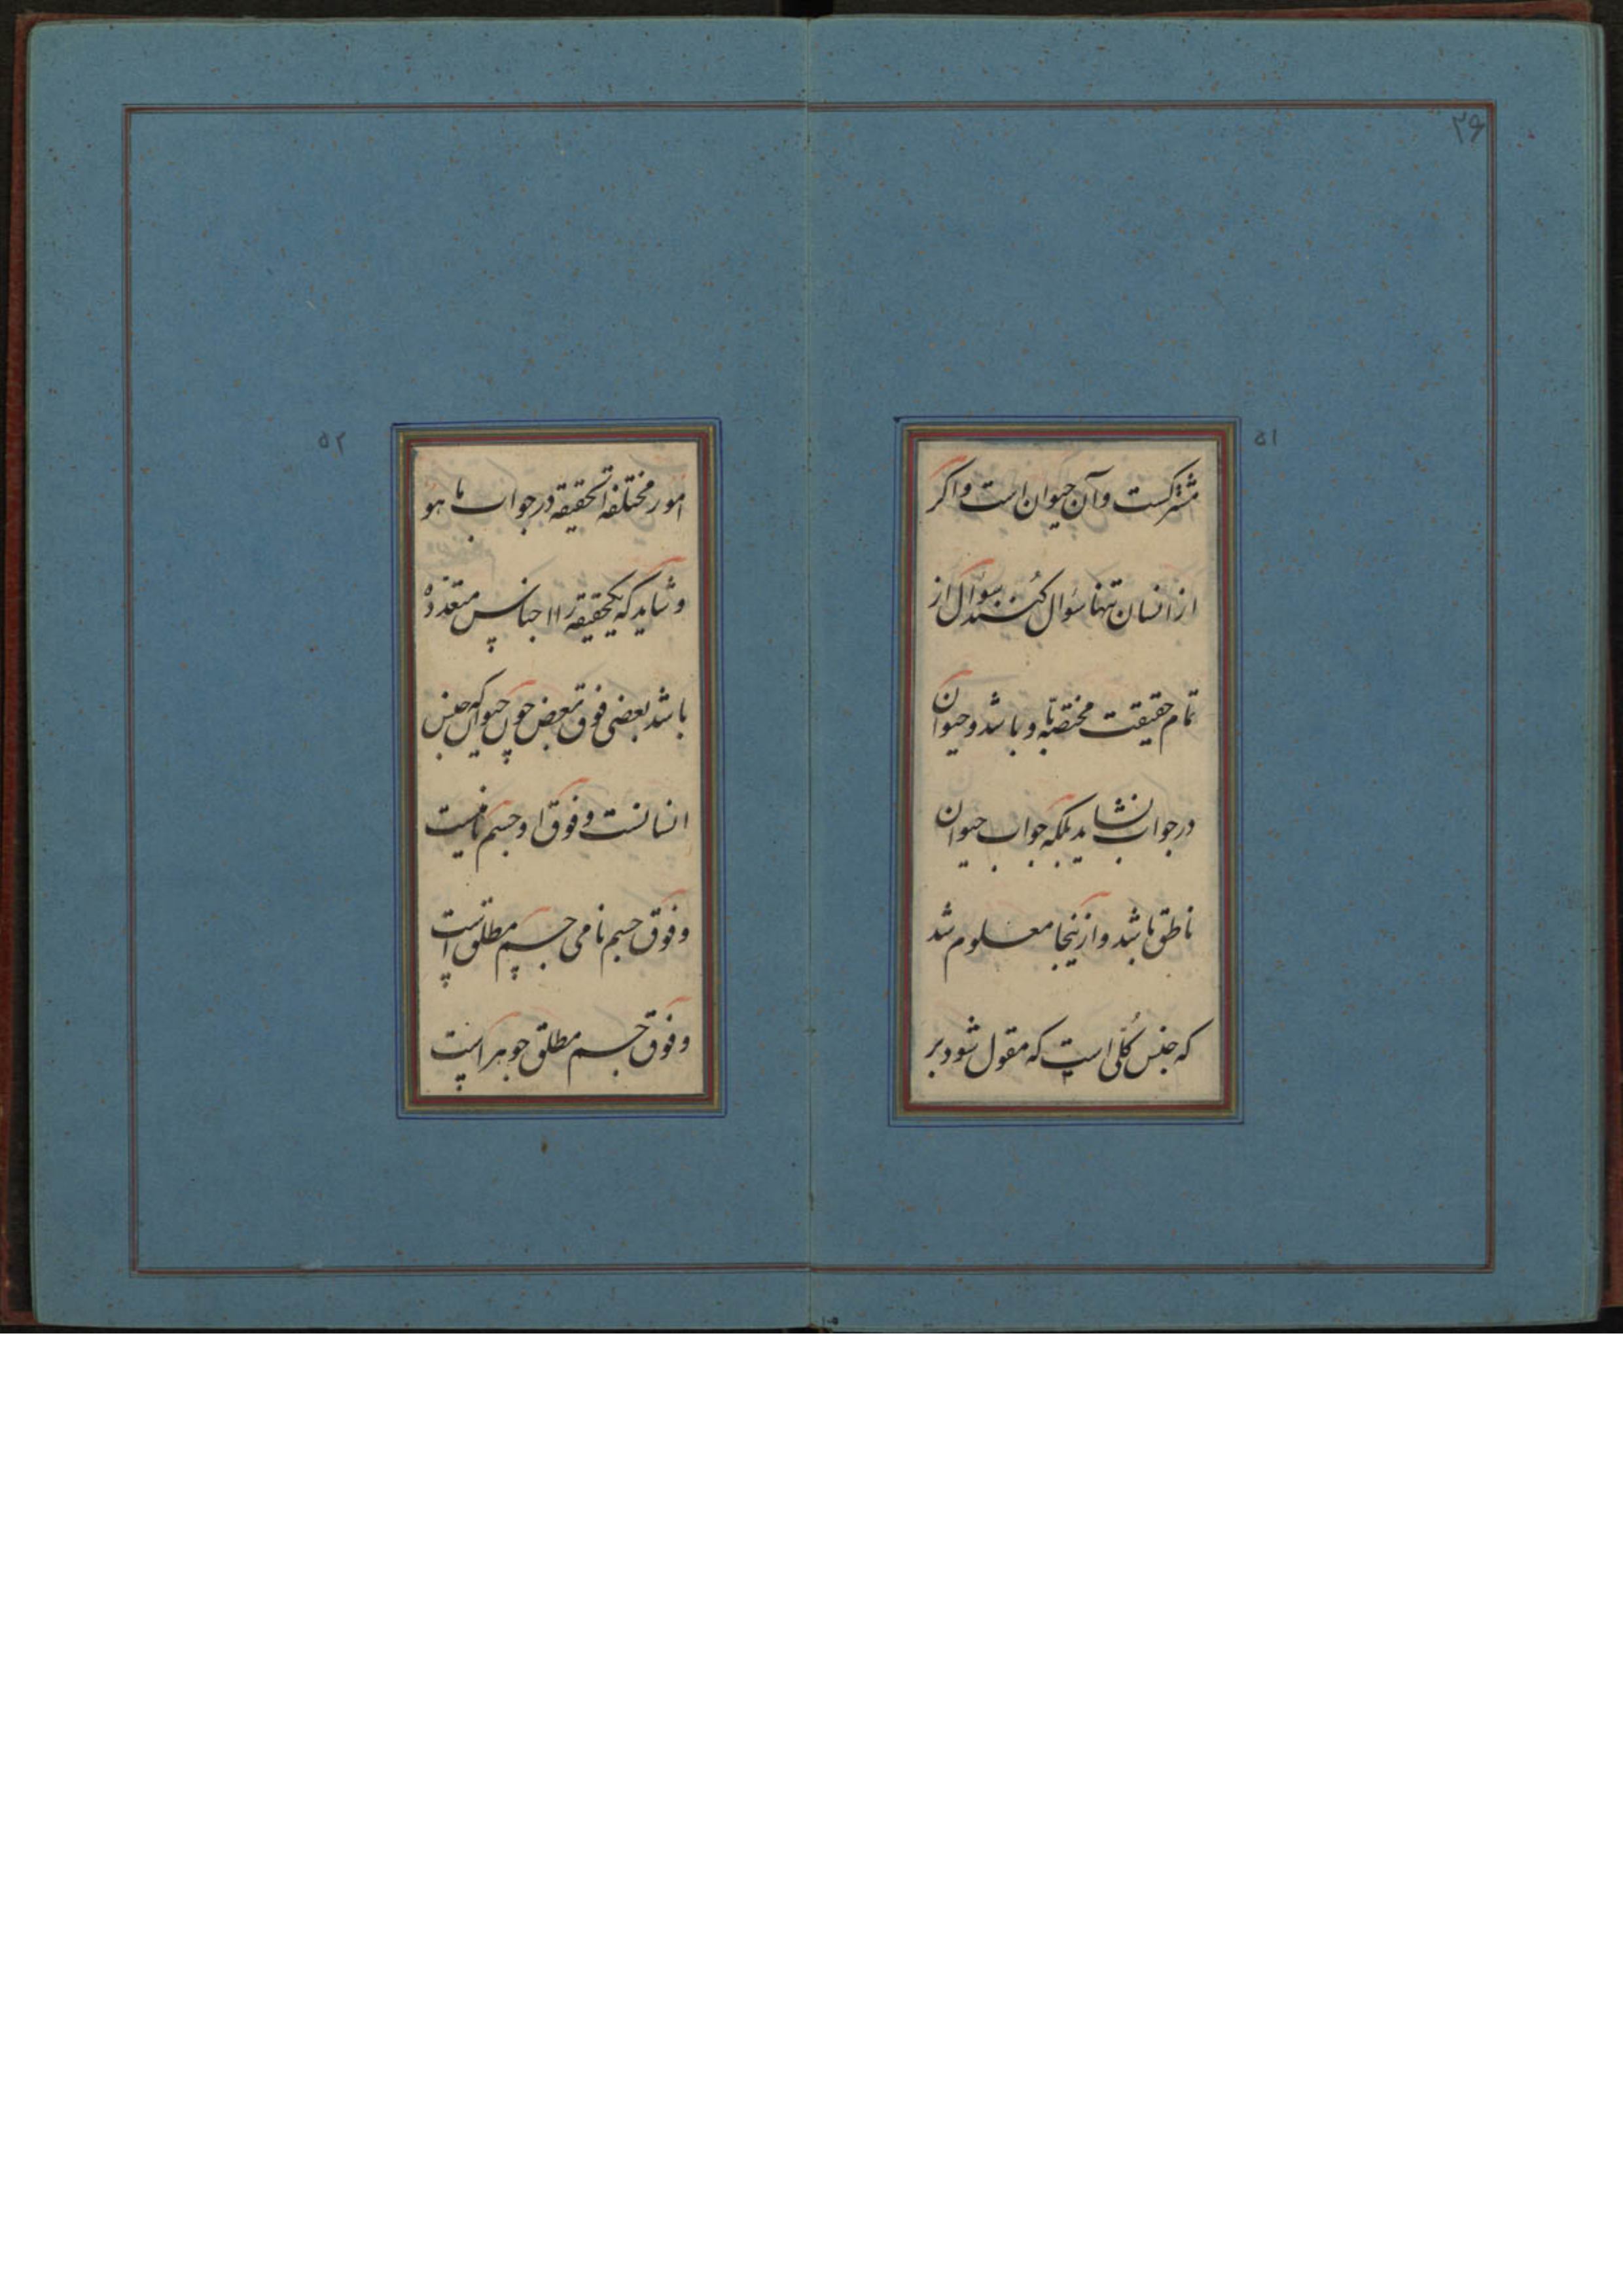 ۲۶
۵۱
مشترکست و آن حیوان است و اکر
از انسان تنها سؤال کنند سؤال از
تمام حقیقت مختصه باو باشد و حیوان
در جواب نشاید بلکه جواب حیوان
ناطق باشد و ازینجا معلوم شد
که جنس کُلّی است که مقول شود بر
۵۲
امور مختلفة الحقیقه در جواب ما هو
و شاید که یکحقیقه را اجناس متعدده
باشد بعضی فوق بعض چون حیوان که جنس
انسانست و فوق او جسم نامیست
و فوق جسم نامی جسم مطلق است
و فوق جسم مطلق جوهر است